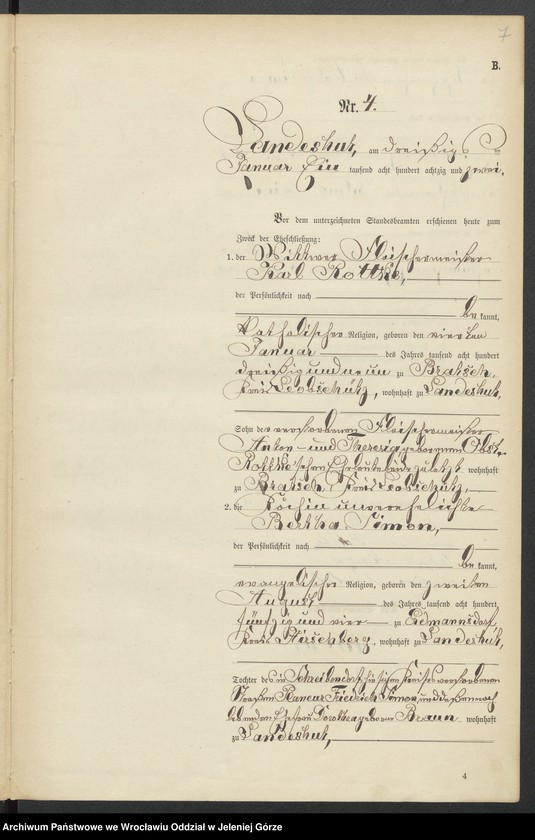 7
B.
Nr. 4.
Landeshut, am dreißigsten
Januar Ein tausend acht hundert achtzig und zwei.
Vor dem unterzeichneten Standesbeamten erschienen heute zum
Zweck der Eheschließung:
1. der Wittwer Fleischermeister
Karl Rottke,
der Persönlichkeit nach
be kannt,
katholischer Religion, geboren den vierten
Januar des Jahres tausend acht hundert
dreißig und neun zu Bratsch,
Kreis Leobschütz, wohnhaft zu Landeshut,
Sohn des verstorbenen Fleischermeister
Anton und Theresia geborenen
Rottke'schen Eheleute beide zuletzt wohnhaft
zu Bratsch, Kreis Leobschütz,
2. die Köchin unverehelichte
Bertha Simon,
der Persönlichkeit nach
be kannt,
evangelischer Religion, geboren den zweiten
August des Jahres tausend acht hundert
fünfzig und vier zu Erdmannsdorf
Kreis Hirschberg, wohnhaft zu Landeshut,
Tochter des in Schreibendorf hiesigen Kreises verstorbenen
Friedrich Simon und dessen noch
lebenden Ehefrau Dorothea geborene Braun wohnhaft
zu Landeshut,
4
Archiwum Państwowe we Wrocławiu Oddział w Jeleniej Górze